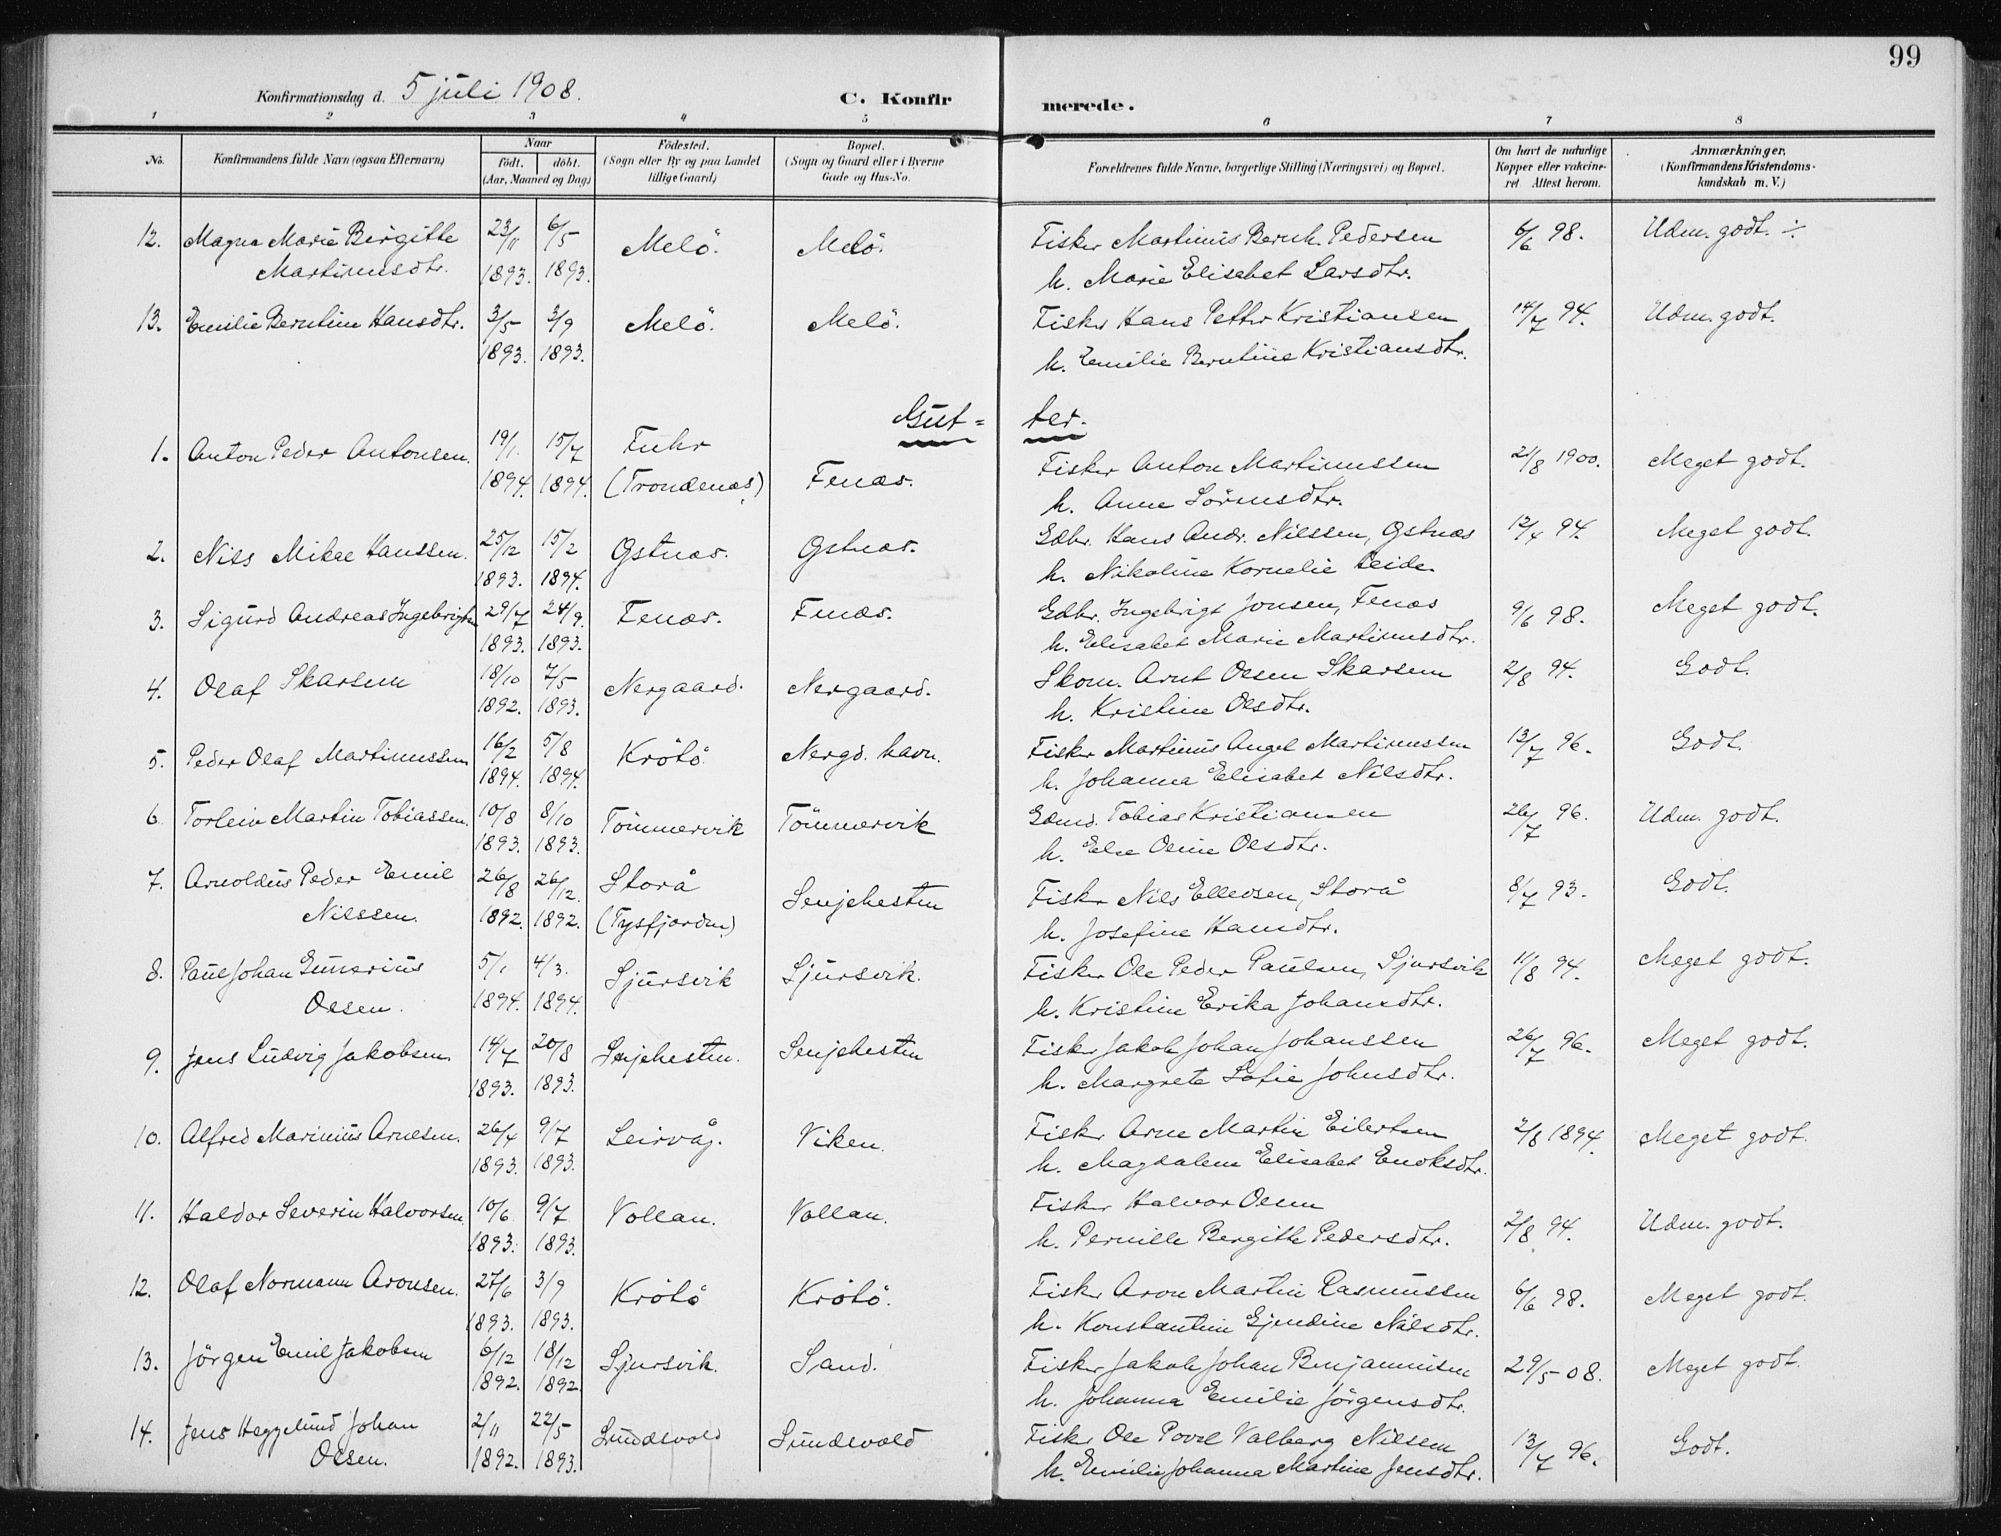 99
Konfirmationsdag d. 5 juli 1908. C. Konfirmerede.
1 2 3 4 5 6 7 8
No. Konfirmandens fulde Navn (ogsaa Efternavn) Naar født. døbt. (Aar, Maaned og Dag) Fødested. (Sogn eller By og paa Landet tillige Gaard) Bopæl. (Sogn og Gaard eller i Byerne Gade og Hus-No. Forældrenes fulde Navne, borgerlige Stilling (Næringsvei) og Bopæl. Om havt de naturlige Kopper eller vakcineret Attest herom. Anmærkninger, (Konfirmandens Kristendomskundskab m. V.)
12. Magna Marie Birgitte 23/11 6/5 Melö. Melö. Fisker Martinus Bernh. Pedersen 6/6 98. Udm. godt. ÷
Martinusdtr. 1893. 1893. h. Marie Elisabet Larsdtr.
13. Emilie Berntine Hansdtr. 3/5 3/9 Melö. Melö. Fisker Hans Petter Kristiansen 14/7 94. Udm. godt.
1893. 1893. h. Emilie Berntine Kristiansdtr.
Gut=ter.
1. Anton Peder Antonsen. 19/1 15/7 Fuhr Fisker Anton Martinussen 21/8 1900. Meget godt.
1894. 1894. (Trondenæs) Fenæs. h. Anne Sörensdtr.
2. Nils Mikal Hanssen. 25/12 15/2 Gstnæs. Gstnæs. Gdbr. Hans Andr. Nilssen, Gstnæs 12/4 94. Meget godt.
1893. 1894. h. Nikoline Kornelie
3. Sigurd Andreas Ingebrigtsen 29/7 24/9 Fenæs. Fenæs. Gdbr. Ingebrigt Jonsen, Fenæs 9/6 98. Meget godt.
1893. 1893. h. Elisabet Marie Martinusdtr.
4. Olaf Skarsem 18/10 7/5 Nergaard. Nergaard. Skom. Arnt Olsen Skarsem 2/8 94. Godt.
1892. 1893. h. Kristine Olsdtr.
5. Peder Olaf Martinussen 16/2 5/8 Krötö Nergd. havn. Fisker Martinus Angel Martinussen 13/7 96. Godt.
1894. 1894. h. Johanna Elisabet Nilsdtr.
6. Torlein Martin Tobiassen. 10/8 8/10 Tömmervik Tömmervik Gdmd. Tobias Kristiansen 26/7 96. Udm. godt.
1893. 1893. h. Else Oline Olsdtr.
7. Arnoldus Peder Emil 26/8 26/12 Storå Senjehesten Fisker Nils Ellevsen, Storå 8/7 93. Godt.
Nilssen. 1892. 1892. (Tysfjorden) h. Josefine Hansdtr.
8. Paul Johan Gunerius 5/1 4/3. Sjursvik Sjursvik. Fisker Ole Peder Paulsen, Sjursvik 11/8 94. Meget godt.
Olsen. 1894. 1894. h. Kristine Erika Johansdtr.
9. Jens Ludvig Jakobsen. 14/7 20/8 Senjehesten. Senjehesten Fisker Jakob Johan Johanssen 26/7 96. Meget godt.
1893. 1893. h. Margrete Sofie Johnsdtr.
10. Alfred Marinius Arnesen. 26/4 9/7 Leirvåg. Viken. Fisker Arne Martin Eilertsen 2/8 1894. Meget godt.
1893. 1893. h. Magdalene Elisabet Enoksdtr.
11. Haldor Severin Halvorsen. 10/6 9/7 Vollan. Vollan. Fisker Halvor Olsen 2/8 94. Udm. godt.
1893. 1893. h. Pernille Bergitte Pedersdtr.
12. Olaf Normann Aronsen. 27/6 3/9 Krötö Krötö. Fisker Aron Martin Rasmussen 6/6 98. Meget godt.
1893. 1893. h. Konstantine Gjendine Nilsdtr.
13. Jörgen Emil Jakobsen 6/12 18/12 Sjursvik. Sand. Fisker Jakob Johan Benjaminsen 29/5-08. Meget godt.
1892. 1892. h. Johanna Emilie Jörgensdtr.
14. Jens Heggelund Johan 2/11 22/5 Sundsvold Sundsvold Fisker Ole Povel Valberg Nilssen 13/7 96. Godt.
Olsen. 1892. 1893. h. Emilie Johanna Martine Jensdtr.